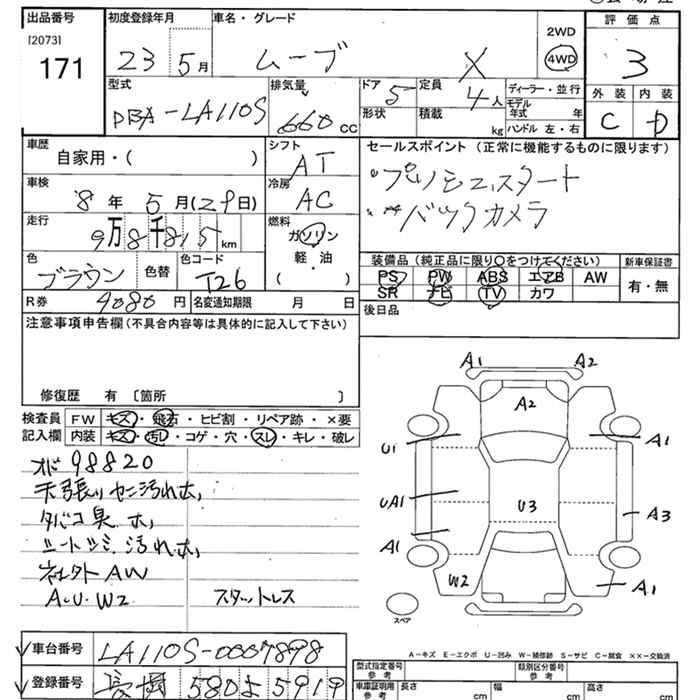 出品番号
[2073]
171
初度登録年月
23 5月
車名・グレード
ムーブ X
2WD
4WD
評価点
3
外装 内装
C D
型式
DBA-LA110S
排気量
660 cc
ドア
5
形状
定員
4人
積載
kg
ディーラー・並行
モデル
年式 年
ハンドル 左・右
車歴
自家用・( )
シフト
AT
車検
8年 5月(29日)
冷房
AC
走行
9万8千815km
燃料
ガソリン
軽・油
( )
色
ブラウン
色替
色コード
T26
R券
9080円
名変通知期限 月 日
セールスポイント (正常に機能するものに限ります)
プッシュスタート
バックカメラ
装備品(純正品に限り○をつけてください)
新車保証書
PS PW ABS エアB AW
SR ナビ TV カワ
有・無
後日品
注意事項申告欄(不具合内容等は具体的に記入して下さい)
修復歴 有 〔箇所 〕
検査員
記入欄
FW キズ・飛石・ヒビ割・リペア跡・×要
内装 キズ・汚レ・コゲ・穴・スレ・キレ・破レ
オド98820
天張りセン汚れ木,
タバコ臭 木,
シートシミ,汚れ木,
社外AW
A・U・W2 スタットレス
A1 A2
A2
U1 A1
UA1 U3 A3
A1
W2 A1
スペア
A-キズ E-エクボ U-凹み W-補修跡 S-サビ C-腐食 ××-交換済
車台番号
LA110S-0007898
登録番号
580よ5919
型式指定番号
参考
類別区分番号
参考
車庫証明用
参考
長さ cm
幅 cm
高さ cm